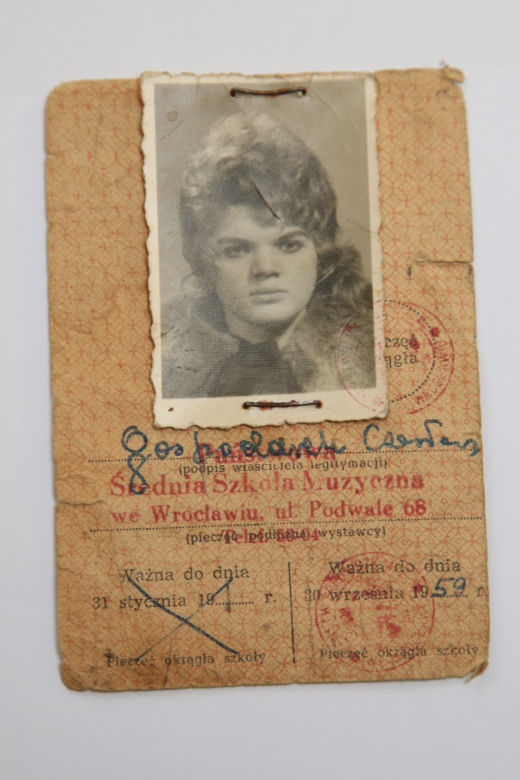 częć
ągła
Gospodarek Czesław
Państwowa
(podpis właściciela legitymacji)
Średnia Szkoła Muzyczna
we Wrocławiu, ul. Podwale 68
(pieczęć podłużna wystawcy)
Ważna do dnia
31 stycznia 19 r.
Pieczęć okrągła szkoły
Ważna do dnia
30 września 1959 r
Pieczęć okrągła szkoły